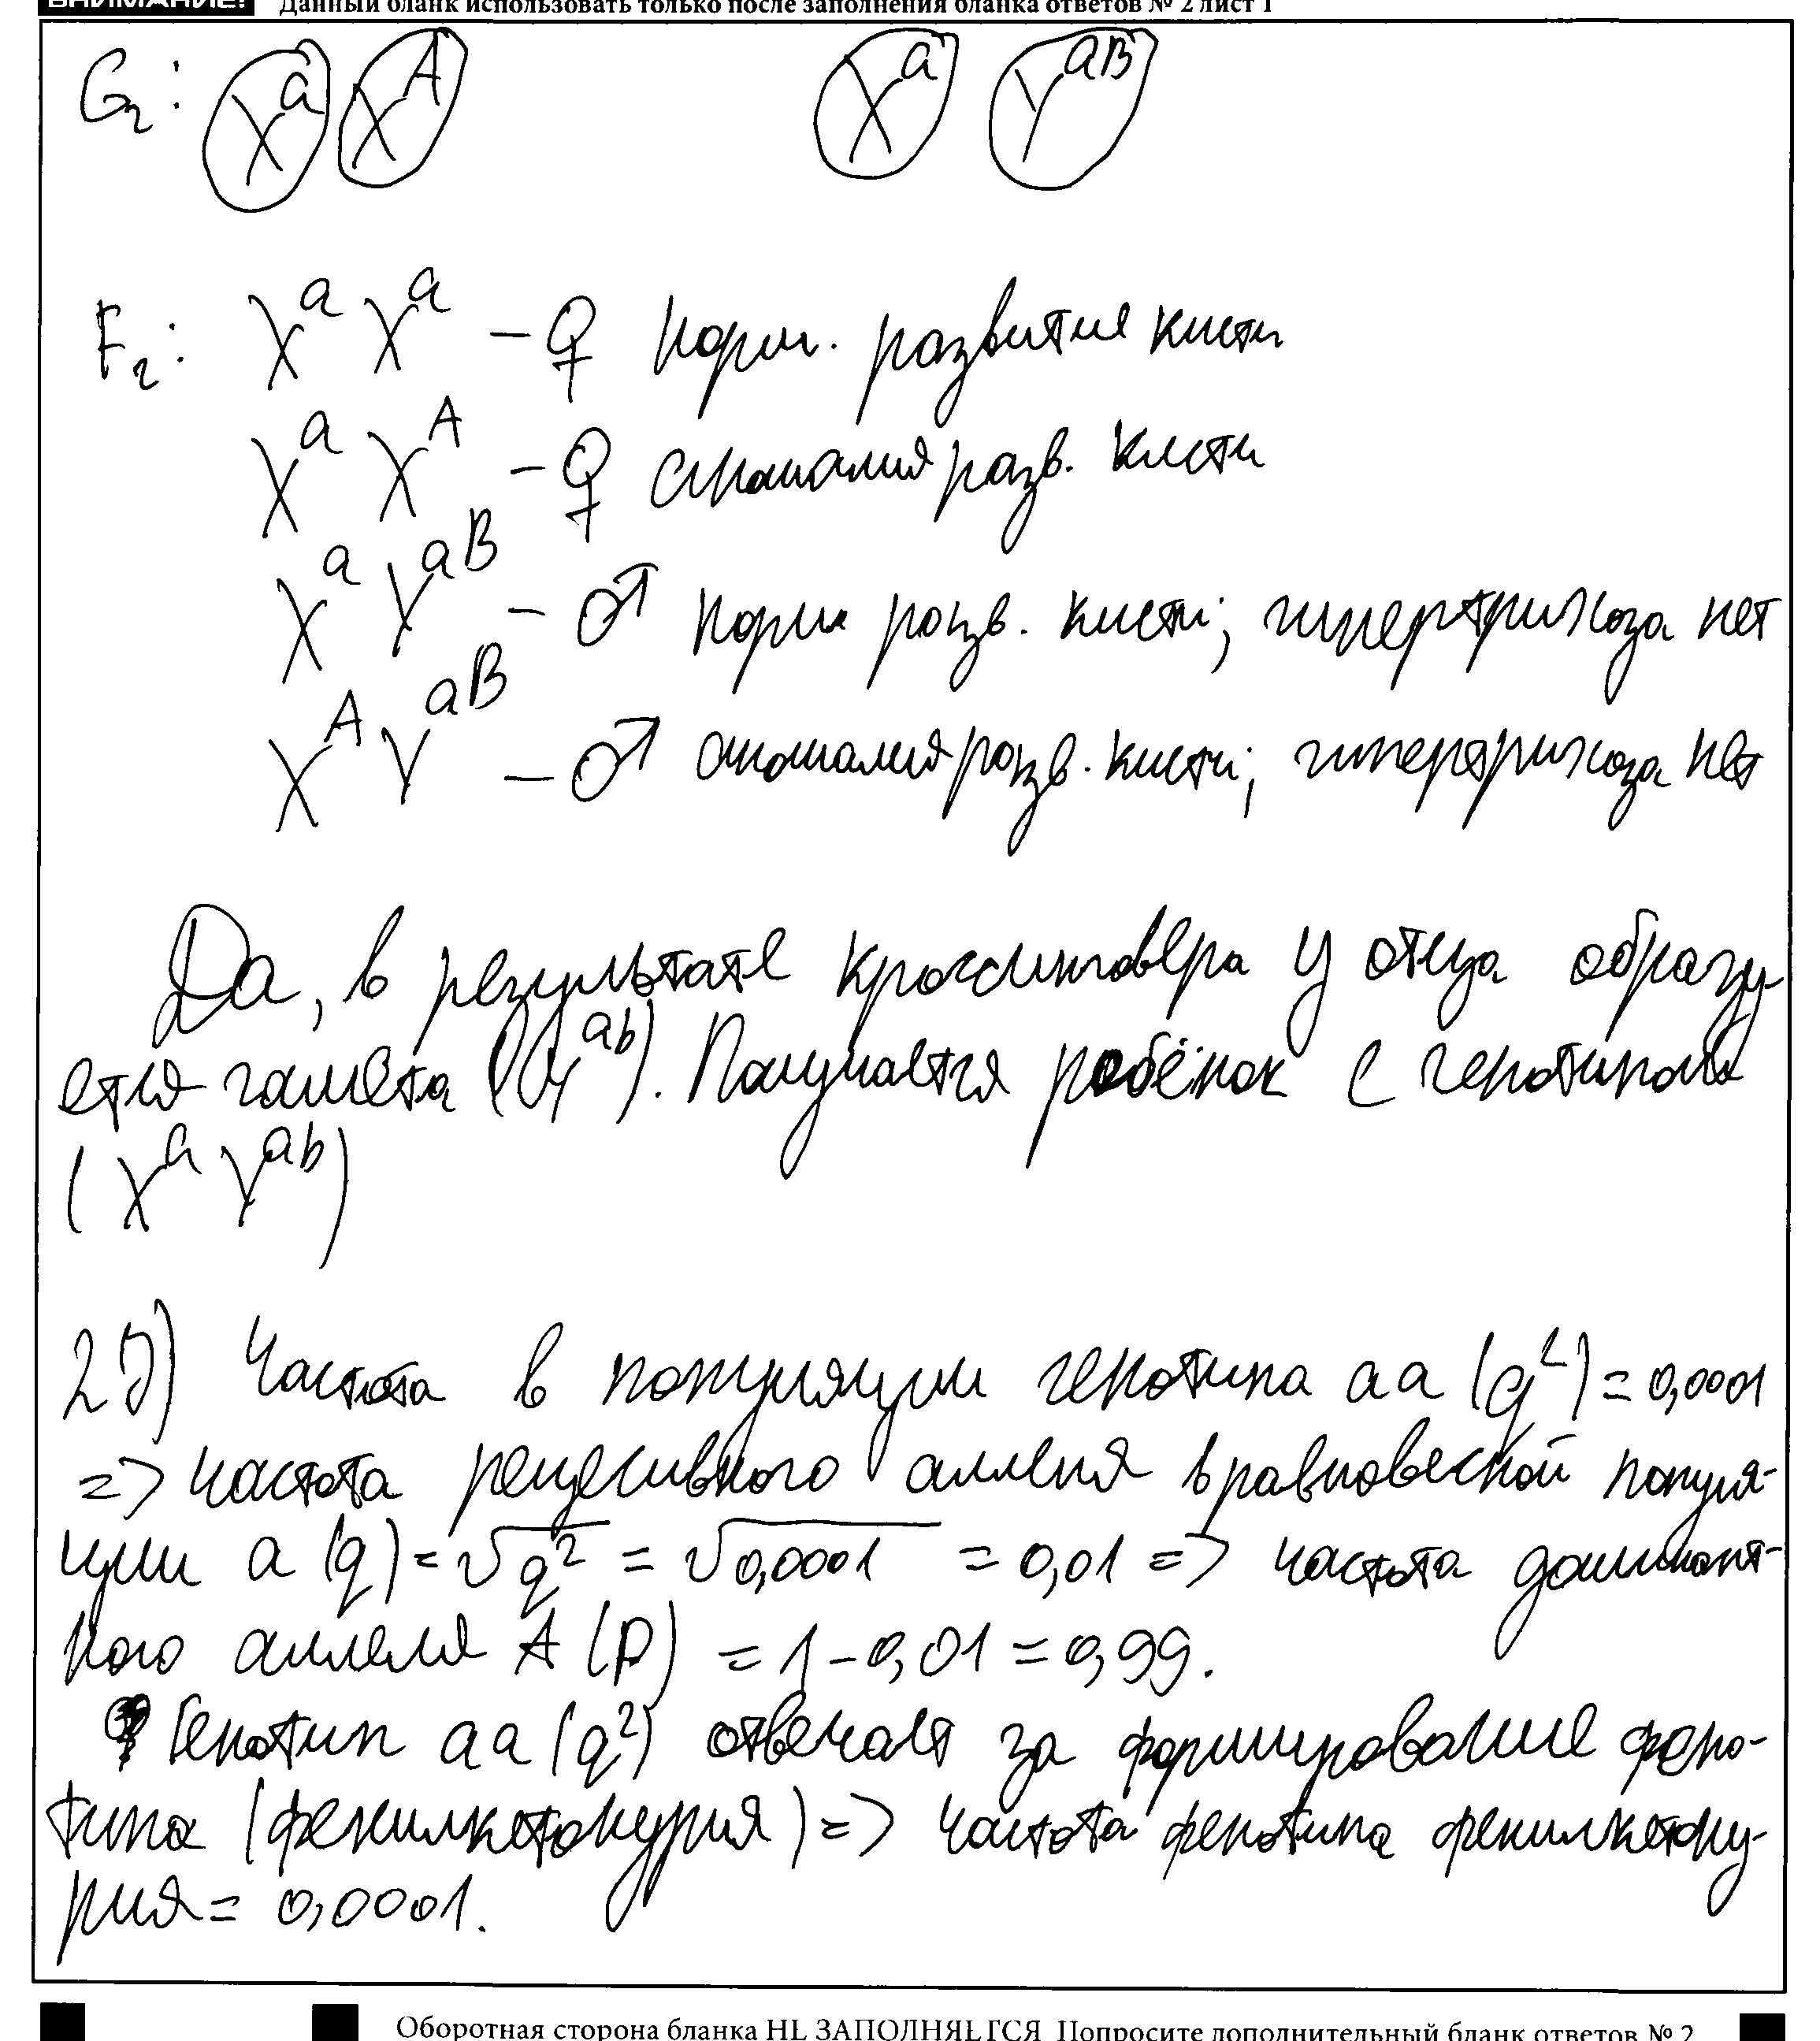 ВНИМАНИЕ! Данный бланк использовать только после заполнения бланка ответов № 2 лист 1
G₂: Xᵃ Xᴬ Xᵃ Yᵃᴮ
F₂: XᵃXᵃ – ♀ норм. развитие кисти
XᵃXᴬ – ♀ аномалия разв. кисти
XᵃYᵃᴮ – ♂ норм разв. кисти; гипертрихоза нет
XᴬYᵃᴮ – ♂ аномалия разв. кисти; гипертрихоза нет
Да, в результате кроссинговера у отца образу-
ется гамета (Yᵃᵇ). Получается ребёнок с генотипом
(XᵃYᵃᵇ)
27) Частота в популяции генотипа aa (q²) = 0,0001
=> частота рецесивного аллеля в равновесной популя-
ции a (q) = √q² = √0,0001 = 0,01 => частота доминант-
ного аллеля A (p) = 1 – 0,01 = 0,99.
Генотип aa (q²) отвечает за формирование фено-
типа (фенилкетонурия) => частота фенотипа фенилкетону-
рия = 0,0001.
Оборотная сторона бланка НЕ ЗАПОЛНЯЕТСЯ Попросите дополнительный бланк ответов № 2